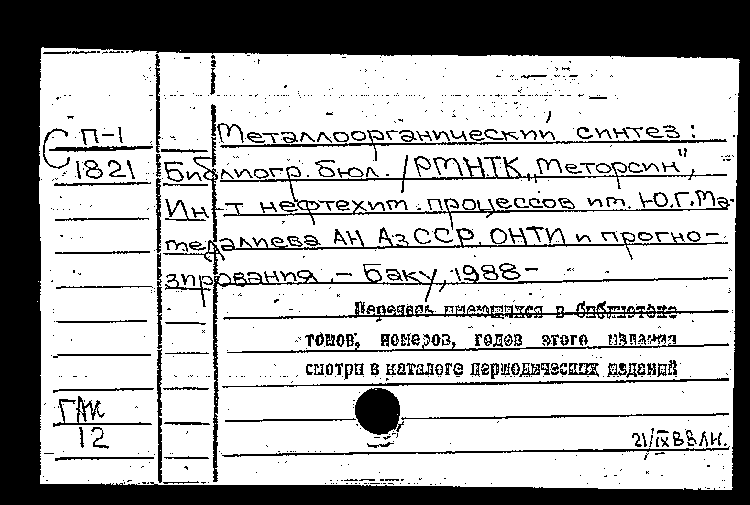 С П-1
1821
Металлоорганический синтез:
Библиогр. бюл. /РМНТК „Меторсин",
Ин-т нефтехим. процессов им. Ю.Г.Ма-
медалиева АН АзССР. ОНТИ и прогно-
зирования. – Баку, 1988–
Перечень имеющихся в библиотеке
томов, номеров, годов этого издания
смотри в каталоге периодических изданий
ГАК
12
21/IX ВВЛН.